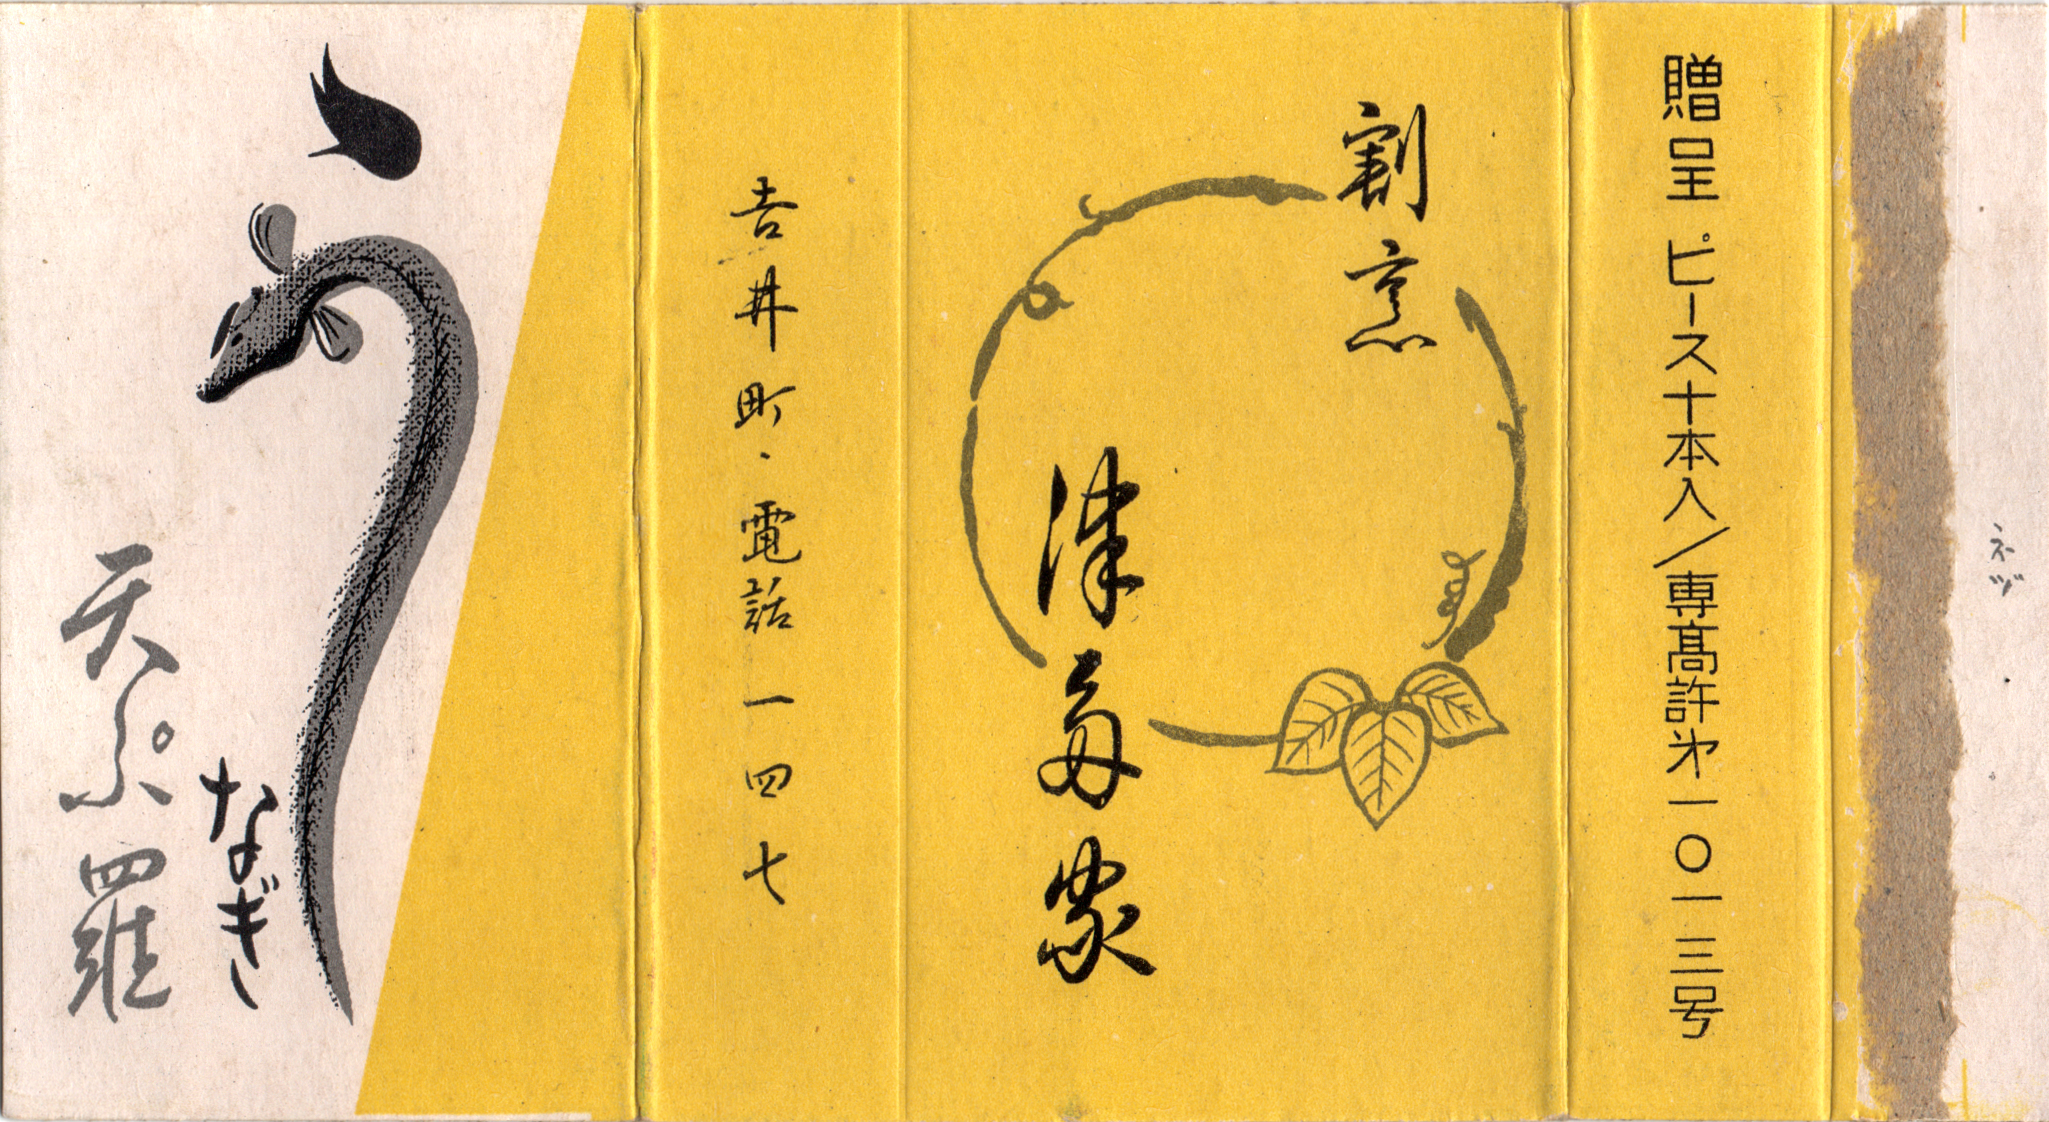 贈呈 ピース十本入/専髙許㐧一〇一三号
割烹
津多家
吉井町・電話 一四七
うなぎ
天ぷ羅
ネヅ